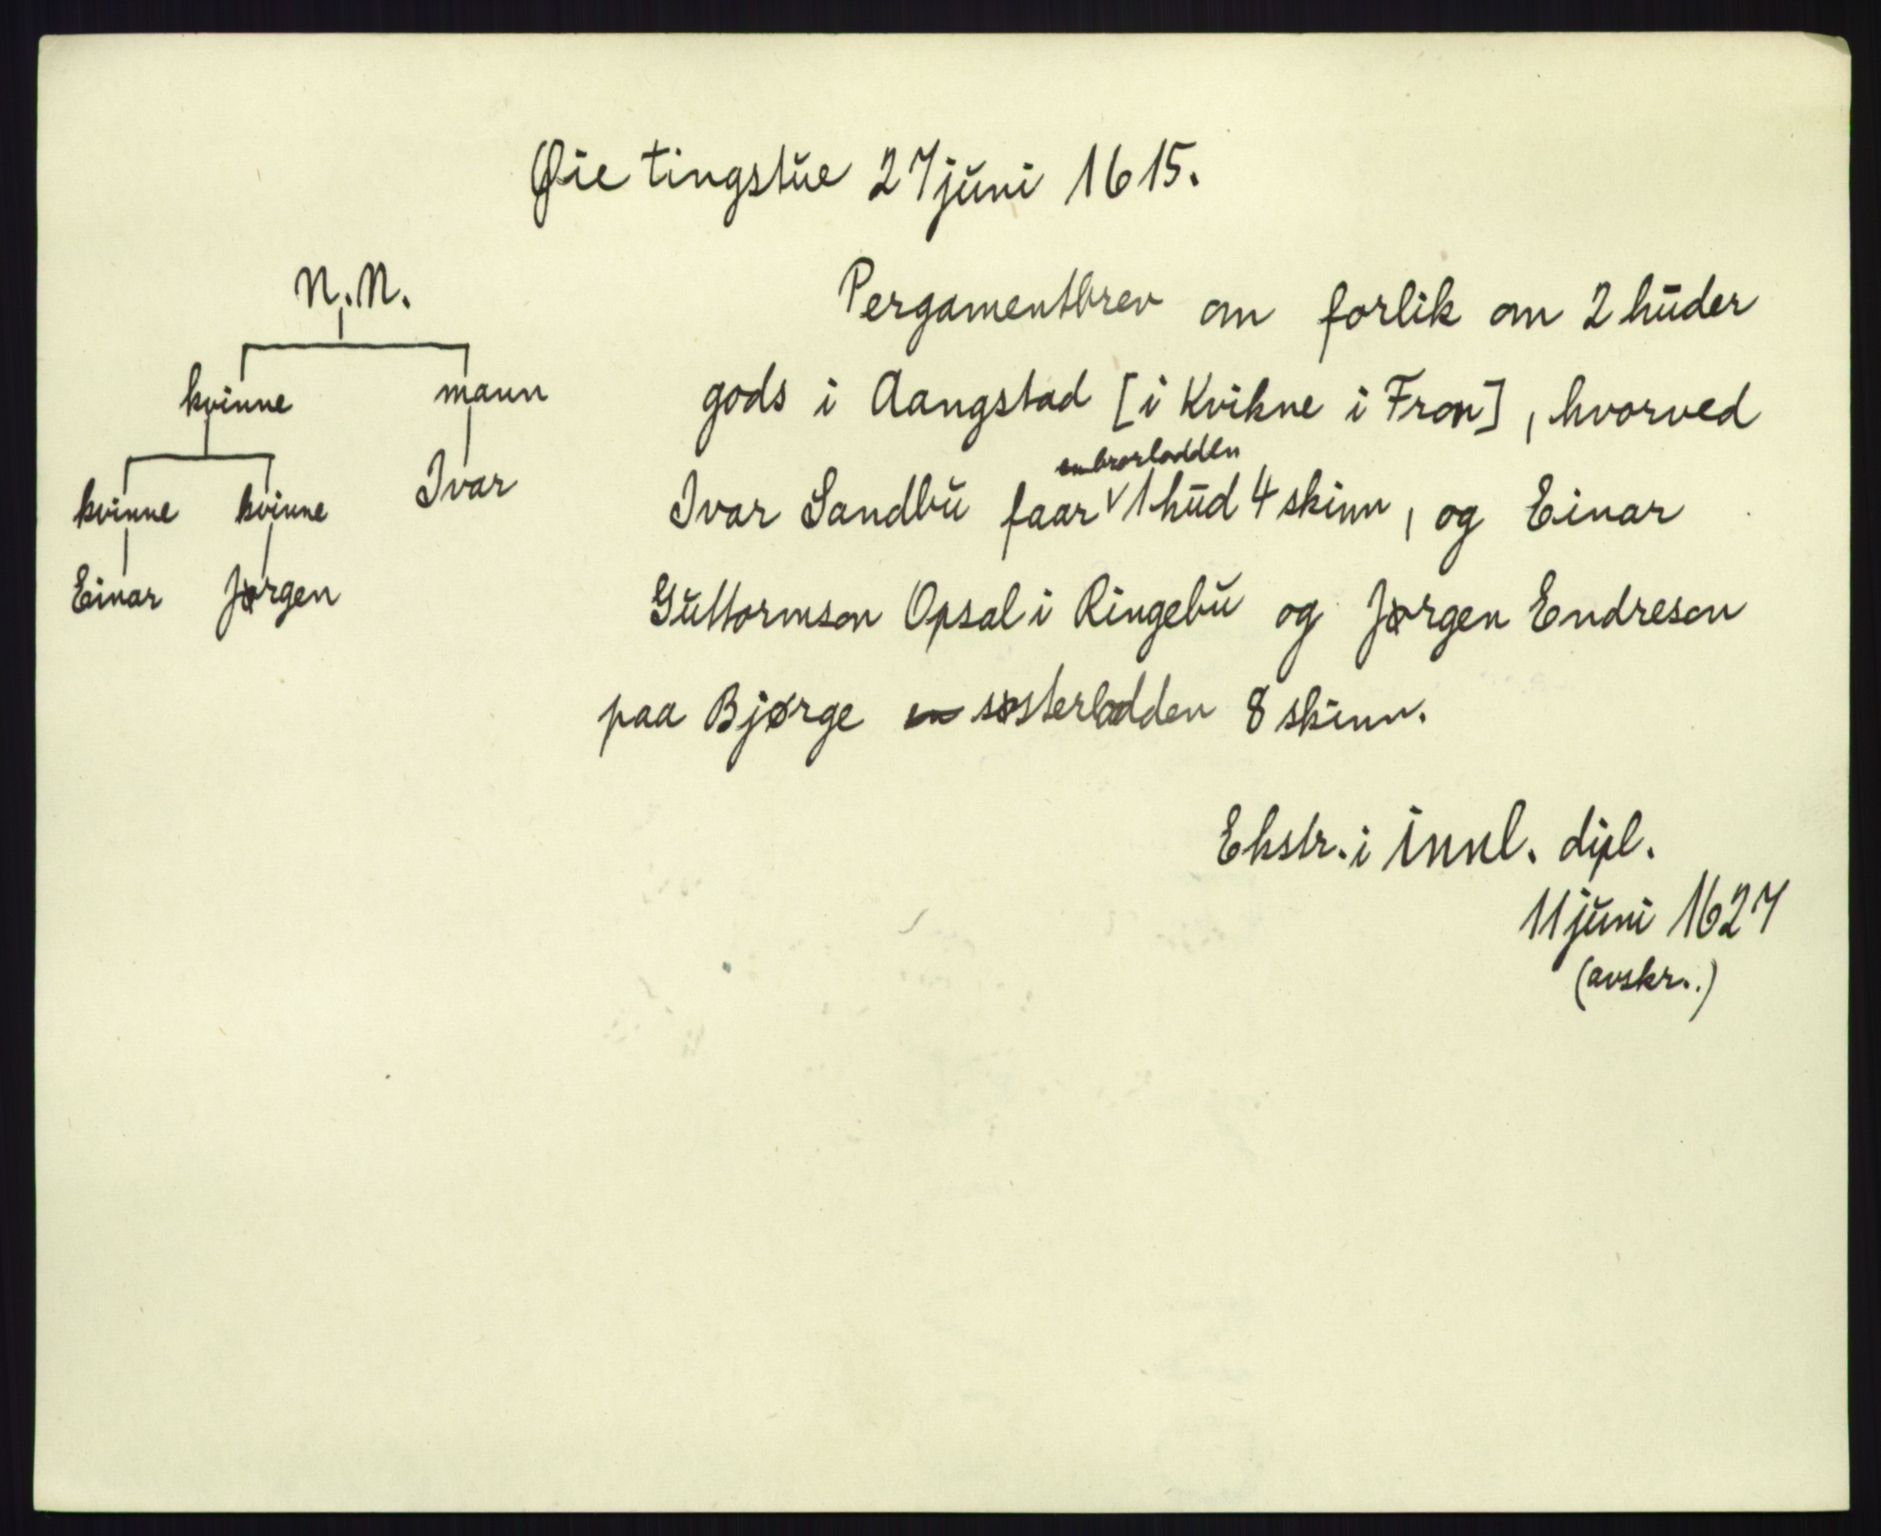 Øie tingstue 27 juni 1615.
N.N.
kvinne mann
kvinne kvinne Ivar
Einar Jørgen
Pergamentbrev om forlik om 2 huder
gods i Aangstad [i Kvikne i Fron], hvorved
brorlodden
Ivar Sandbu faar 1 hud 4 skinn, og Einar
Guttormson Opsal i Ringebu og Jørgen Endreson
paa Bjørge søsterlodden 8 skinn.
Ekstr. i innl. dipl.
11 juni 1627
(avskr..)